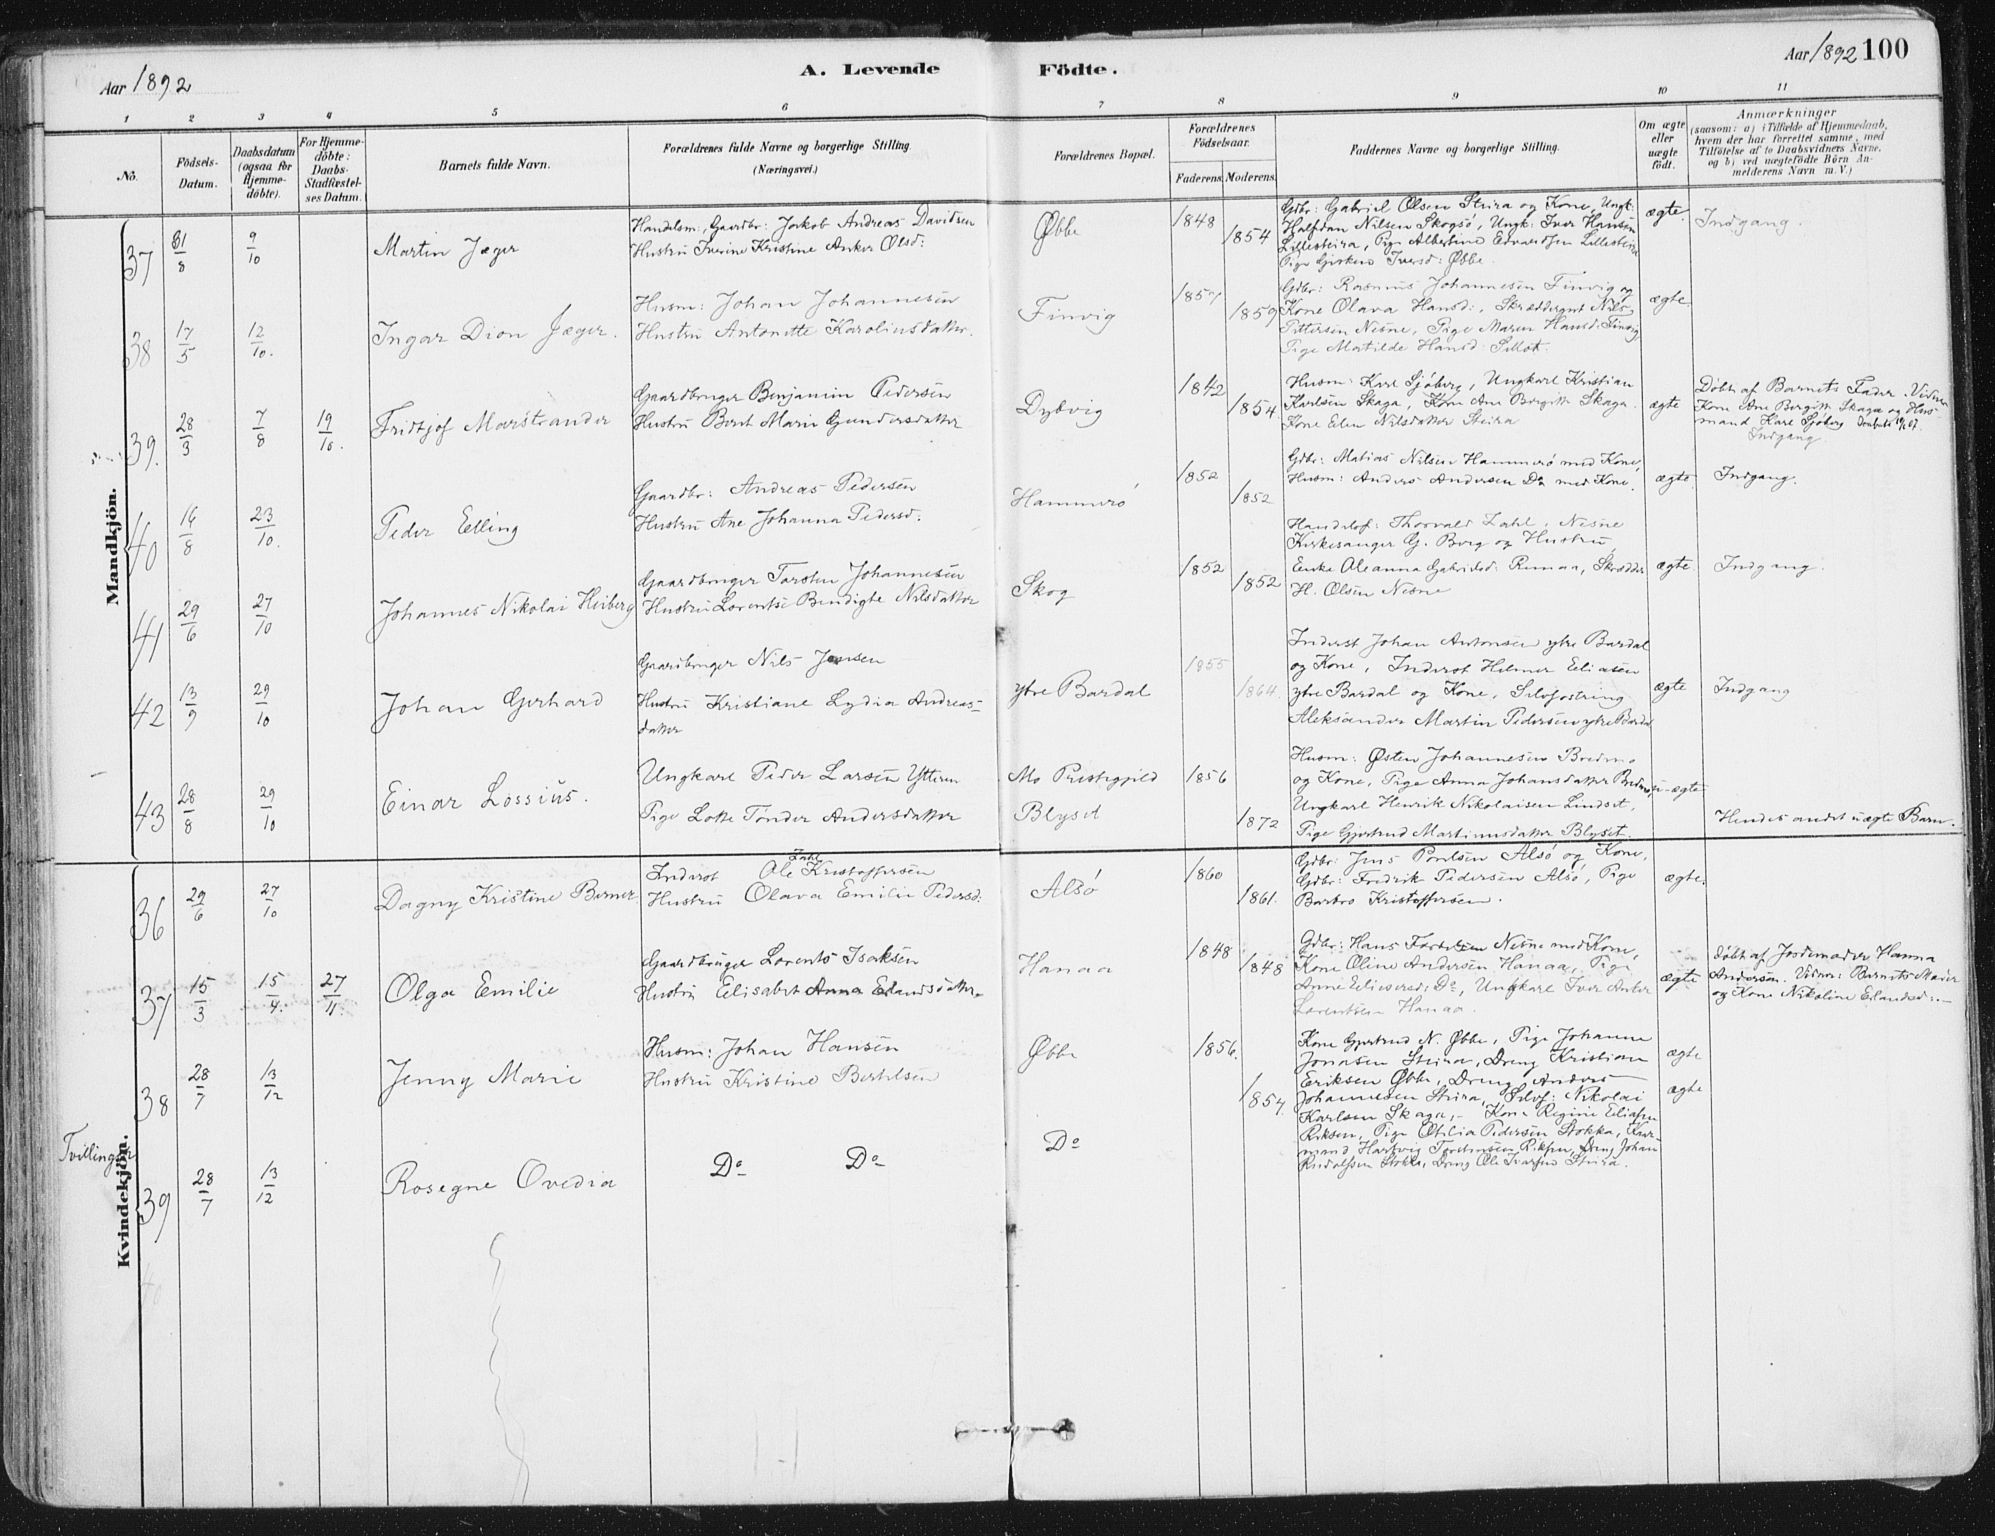 Aar 1892
A. Levende Födte.
Aar 1892 100
1 2 3 4 5 6 7 8 9 10 11
No.
Födsels-Datum.
Daabsdatum (ogsaa for Hjemme-döbte).
For Hjemme-döbte: Daabs-Stadfæstel-ses Datum.
Barnets fulde Navn.
Forældrenes fulde Navne og borgerlige Stilling. (Næringsvei.)
Forældrenes Bopæl.
Forældrenes Födselsaar.
Faderens. Moderens.
Faddernes Navne og borgerlige Stilling.
Om ægte eller uægte födt.
Anmærkninger
(saasom: a) i Tilfælde af Hjemmedaab,
hvem der har forrettet samme, med
Tilföielse af to Daabsvidners Navne,
og b) ved uægtefödte Börn An-
melderens Navn m. V.)
Mandkjön.
37 31/8 9/10 Martin Jæger
Handelsm., Gaardbr: Jakob Andreas Davidsen
Hustru Iverine Kristine Anker Olsd:
Øbbe 1848 1854
Gdbr: Gabriel Olsen Steira og Kone, Ungk:
Halfdan Nilsen Skogsö, Ungk: Iver Hansen
Lillesteira, Pige Albertine Edvardsen Lillesteira
Pige Iversd: Øbbe.
ægte. Indgang.
38 17/5 12/10. Ingar Dion Jæger.
Husm: Johan Johannesen
Hustru Antonette Karoliusdatter.
Finvig 1857 1859
Gdbr: Rasmus Johannesen Finvig og
Kone Olava Hansd:, Skræddersvt Nils
Pettersen Nesne, Pige Maren Hansd: Finvig,
Pige Matilde Hansd:
ægte
39. 28/3 7/8 19/10. Fridtjof Marstrander
Gaardbruger Benjamin Pedersen
Hustru Berit Marie Gundersdatter
Dybvig 1842 1854
Husm: Karl Sjöberg, Ungkarl Kristian
Karlsen Skaga, Kone Ane Bergitte Skaga.
Kone Elen Nilsdatter Steira
ægte
Döbt af Barnets Fader. Vidner
Kone Ane Bergitte Skaga og Hus-
mand Karl Sjöberg
Indgang
40 16/8 23/10. Peder Elling
Gaardbr: Andreas Pedersen
Hustru Ane Johanna Pedersd:
Hammerö 1852 1852
Gdbr: Matias Nilsen Hammerö med Kone,
Husm: Anders Andersen Do med Kone.
Handelsf: Thorvald Zahl, Nesne
ægte Indgang.
41 29/6 27/10 Johannes Nikolai Heiberg
Gaardbruger Torsten Johannesen
Hustru Lorentse Bendigte Nilsdatter
Skog 1852 1852
Kirkesanger G. Borg og Hustru,
Enke Oleanna Gabrielsd. Remaa, Skrædder
H. Olsen Nesne
ægte Indgang.
42 13/9 29/10 Johan Gerhard
Gaardbruger Nils Jensen
Hustru Kristiane Lydia Andreas-
datter
ytre Bardal 1855 1864.
Inderst Johan Antonsen ytre Bardal
og Kone, Inderst Helmer Eliasen
ytre Bardal og Kone, Selvfostring
Aleksander Martin Pedersen ytre Bardal
ægte Indgang
43 28/8 29/10 Einar Lossius.
Ungkarl Peder Larsen Ytteren
Pige Lotte Tönder Andersdatter
Mo Prestegjeld
Blyset 1856 1872
Husm: Østen Johannesen Bredmo
og Kone, Pige Anna Johansdatter Bredmo,
Ungkarl Henrik Nikolaisen Lindset,
Pige Gjertrud Martinusdatter Blyset.
u-ægte
Hendes andet uægte Barn.
Kvindekjön.
36 29/6 27/10 Dagny Kristine Berner
Inderst Ole Zahl Kristoffersen
Hustru Olava Emilie Pedersd:
Alsö 1860 1861.
Gdbr: Jens Poulsen Alsö og Kone,
Gdbr: Fredrik Pedersen Alsö, Pige
Barbro Kristoffersen.
ægte.
37 15/3 15/4. 27/11. Olga Emilie
Gaardbruger Lorents Isaksen
Hustru Elisabet Anna Erlandsdatter
Hanaa 1848 1848
Gdbr: Hans Nesne med Kone,
Kone Oline Andersen Hanaa, Pige
Anne Do, Ungkarl Iver Anker
Lorentsen Hanaa.
ægte
Döbt af Jordemoder Hanna
Andersen. Vidner: Barnets Moder
og Kone Nikoline Erlandsd:
38 28/7 13/12 Jenny Marie
Husm: Johan Hansen
Hustru Kristine Bertelsen
Øbbe 1856. 1857
Kone Gjertrud N. Øbbe, Pige Johanne
Jonasen Steira, Dreng Kristian
Eriksen Øbbe, Dreng Anders
Johannesen Steira, Selvf: Nikolai
Karlsen Skaga,
ægte
ægte
Tvillinger
39 28/7 13/12 Rosegne Ovedia
Do Do Do
Kone Regine Eliasen
Riksen, Pige Otilia Pedersen Stokka, Kar-
mand Hartvig Torstensen Dreng Johan
Rudolfsen Stokka, Dreng Ole Ivarsen Steira.